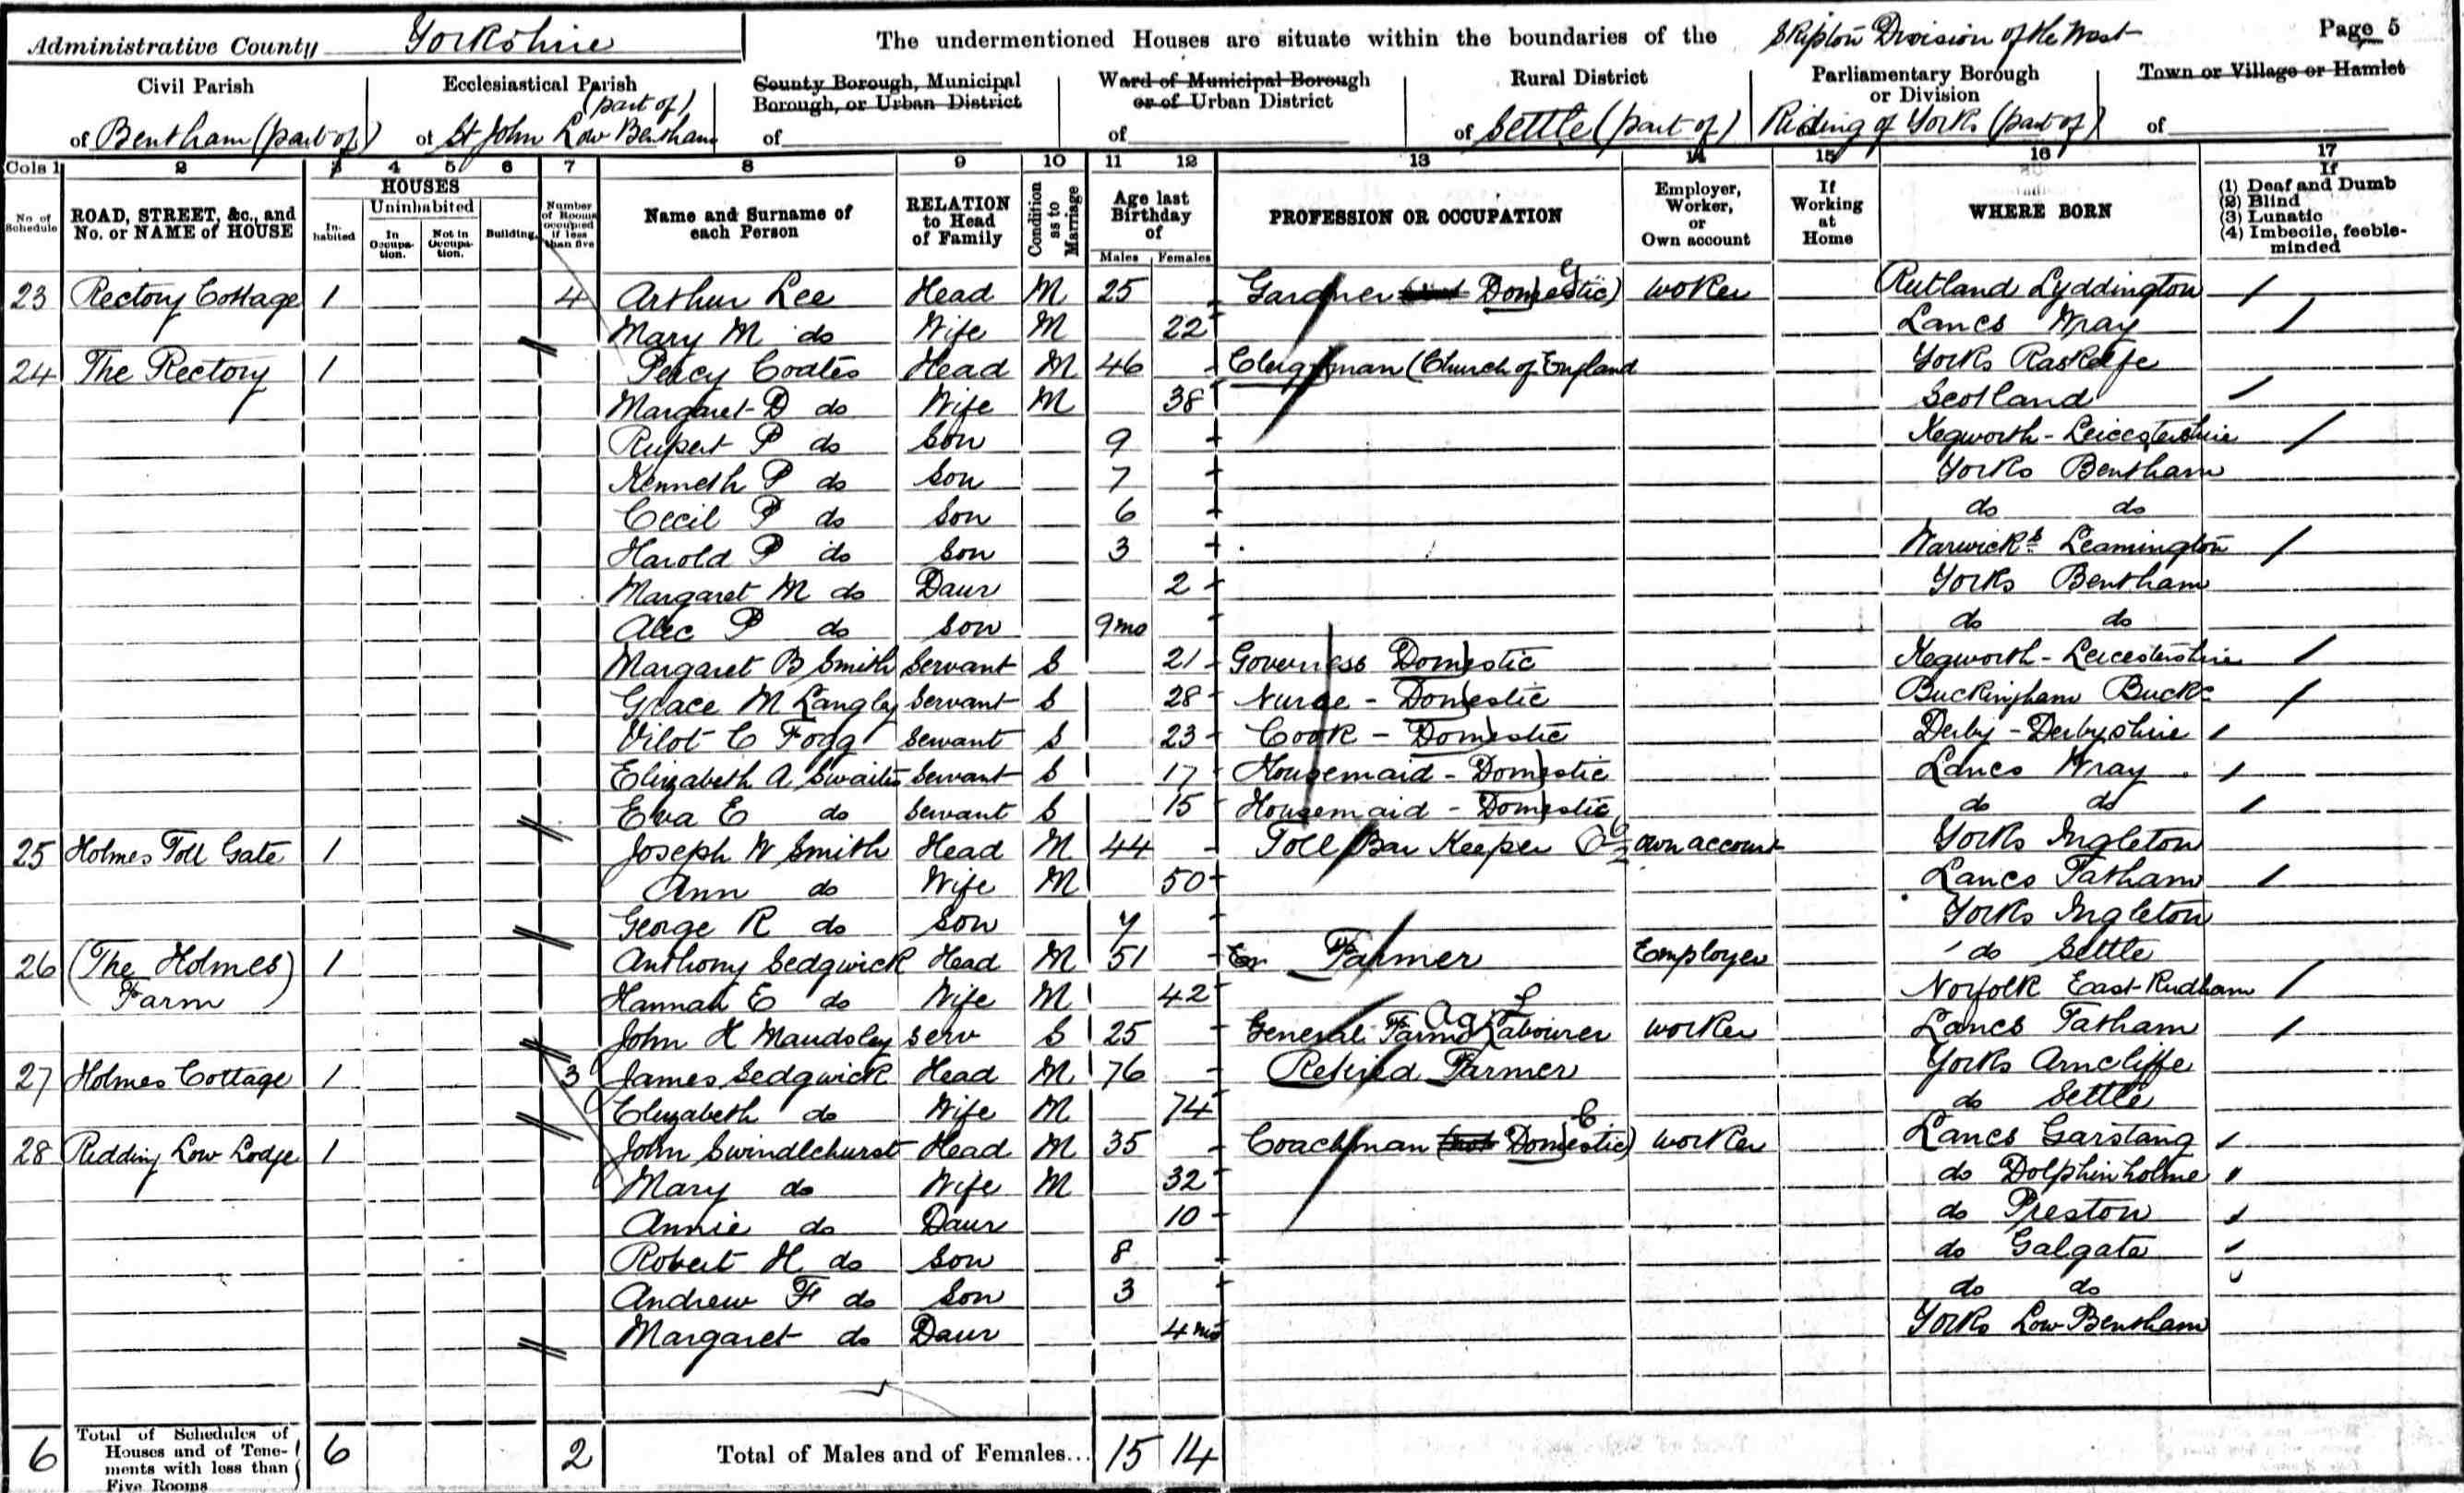 Administrative County Yorkshire The undermentioned Houses are situate within the boundaries of the Skipton Division of the West Page 5
Civil Parish Ecclesiastical Parish County Borough, Municipal Borough, or Urban District Ward of Municipal Borough or of Urban District Rural District Parliamentary Borough or Division Town or Village or Hamlet
of Bentham (part of) of St John Low Bentham (part of) of of of Settle (part of) Riding of Yorks (part of) of
Cols 1 2 3 4 5 6 7 8 9 10 11 12 13 14 15 16 17
No. of Schedule ROAD, STREET, &c., and No. or NAME of HOUSE HOUSES Inhabited Uninhabited In Occupation. Not in Occupation. Building. Number of Rooms occupied if less than five Name and Surname of each Person RELATION to Head of Family Condition as to Marriage Age last Birthday of Males Females PROFESSION OR OCCUPATION Employer, Worker, or Own account If Working at Home WHERE BORN If (1) Deaf and Dumb (2) Blind (3) Lunatic (4) Imbecile, feeble-minded
23 Rectory Cottage 1 4 Arthur Lee Head M 25 Gardner Domestic) worker Rutland Lyddington
Mary M do Wife M 22 Lancs Wray
24 The Rectory 1 Percy Coates Head M 46 Clergyman (Church of England Yorks
Margaret D do Wife M 38 Scotland
Rupert P do Son 9 Kegworth - Leicestershire
Kenneth P do Son 7 Yorks Bentham
Cecil P do Son 6 do do
Harold P do Son 3 Warwicks Leamington
Margaret M do Daur 2 Yorks Bentham
Alec P do Son 9 mo do do
Margaret B Smith Servant S 21 Governess Domestic Kegworth - Leicestershire
Grace M Langley Servant S 28 Nurse - Domestic Buckingham Bucks
Vilot C Fogg Servant S 23 Cook - Domestic Derby - Derbyshire
Elizabeth A Swaites Servant S 17 Housemaid - Domestic Lancs Wray
Eva E do Servant S 15 Housemaid - Domestic do do
25 Holmes Toll Gate 1 Joseph W Smith Head M 44 Toll Bar Keeper own account Yorks Ingleton
Ann do Wife M 50 Lancs Tatham
George R do Son 7 Yorks Ingleton
26 (The Holmes) 1 Anthony Sedgwick Head M 51 Farmer Employer do Settle
Farm Hannah E do Wife M 42 Norfolk East-Rudham
John H Maudsley Serv S 25 General Farm Labourer Ag L worker Lancs Tatham
27 Holmes Cottage 1 3 James Sedgwick Head M 76 Retired Farmer Yorks Arncliffe
Elizabeth do Wife M 74 do Settle
28 Ridding Low Lodge 1 John Swindlehurst Head M 35 Coachman Domestic) worker Lancs Garstang
Mary do Wife M 32 do Dolphinholme
Annie do Daur 10 do Preston
Robert H do Son 8 do Galgate
Andrew F do Son 3 do do
Margaret do Daur 4 mo Yorks Low Bentham
6 Total of Schedules of Houses and of Tenements with less than Five Rooms 6 2 Total of Males and of Females... 15 14